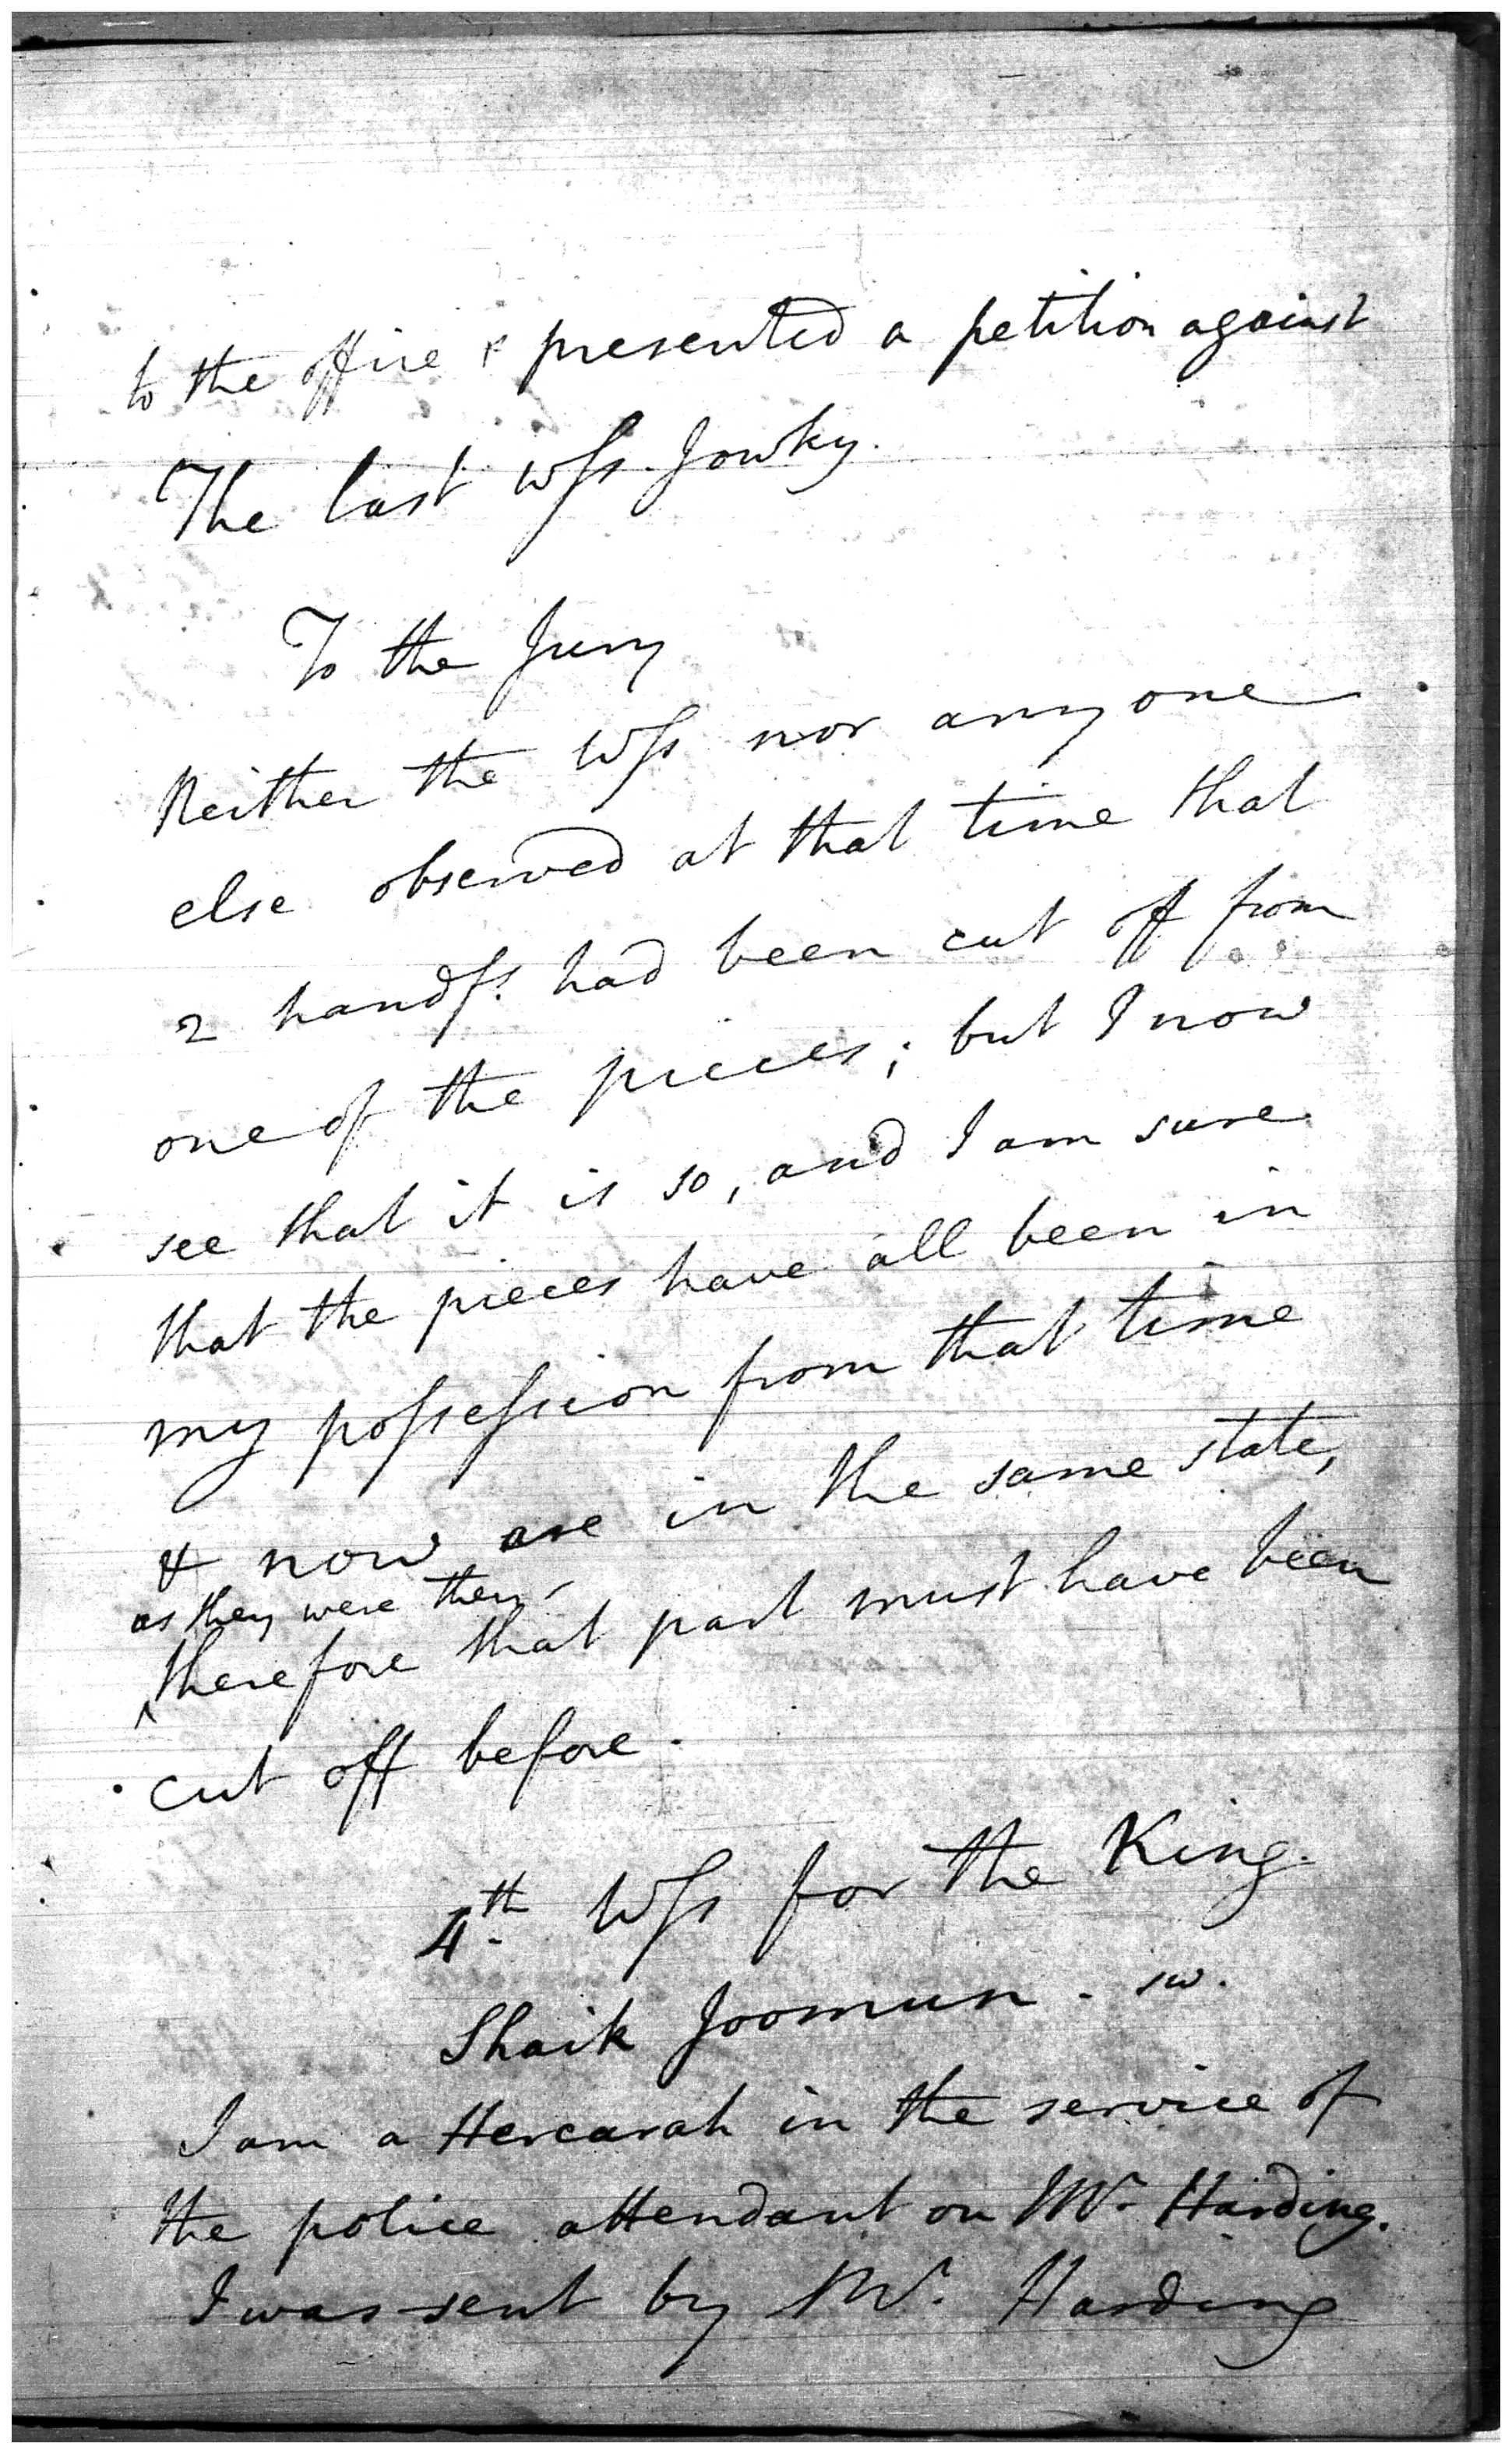 to the office & presented a petition against
The last Wss. Jowky.
To the Jury
Neither the Wss nor any one
else observed at that time that
2 handfs. had been cut off from
one of the pieces; but I now
see that it is so, and I am sure
that the pieces have all been in
my possession from that time
& now are in the same state,
as they were then,
therefore that part must have been
cut off before.
4th. Wss for the King.
Shaik Joomun. sw.
I am a Hercarah in the service of
the police attendant on Mr. Harding.
I was sent by Mr. Harding